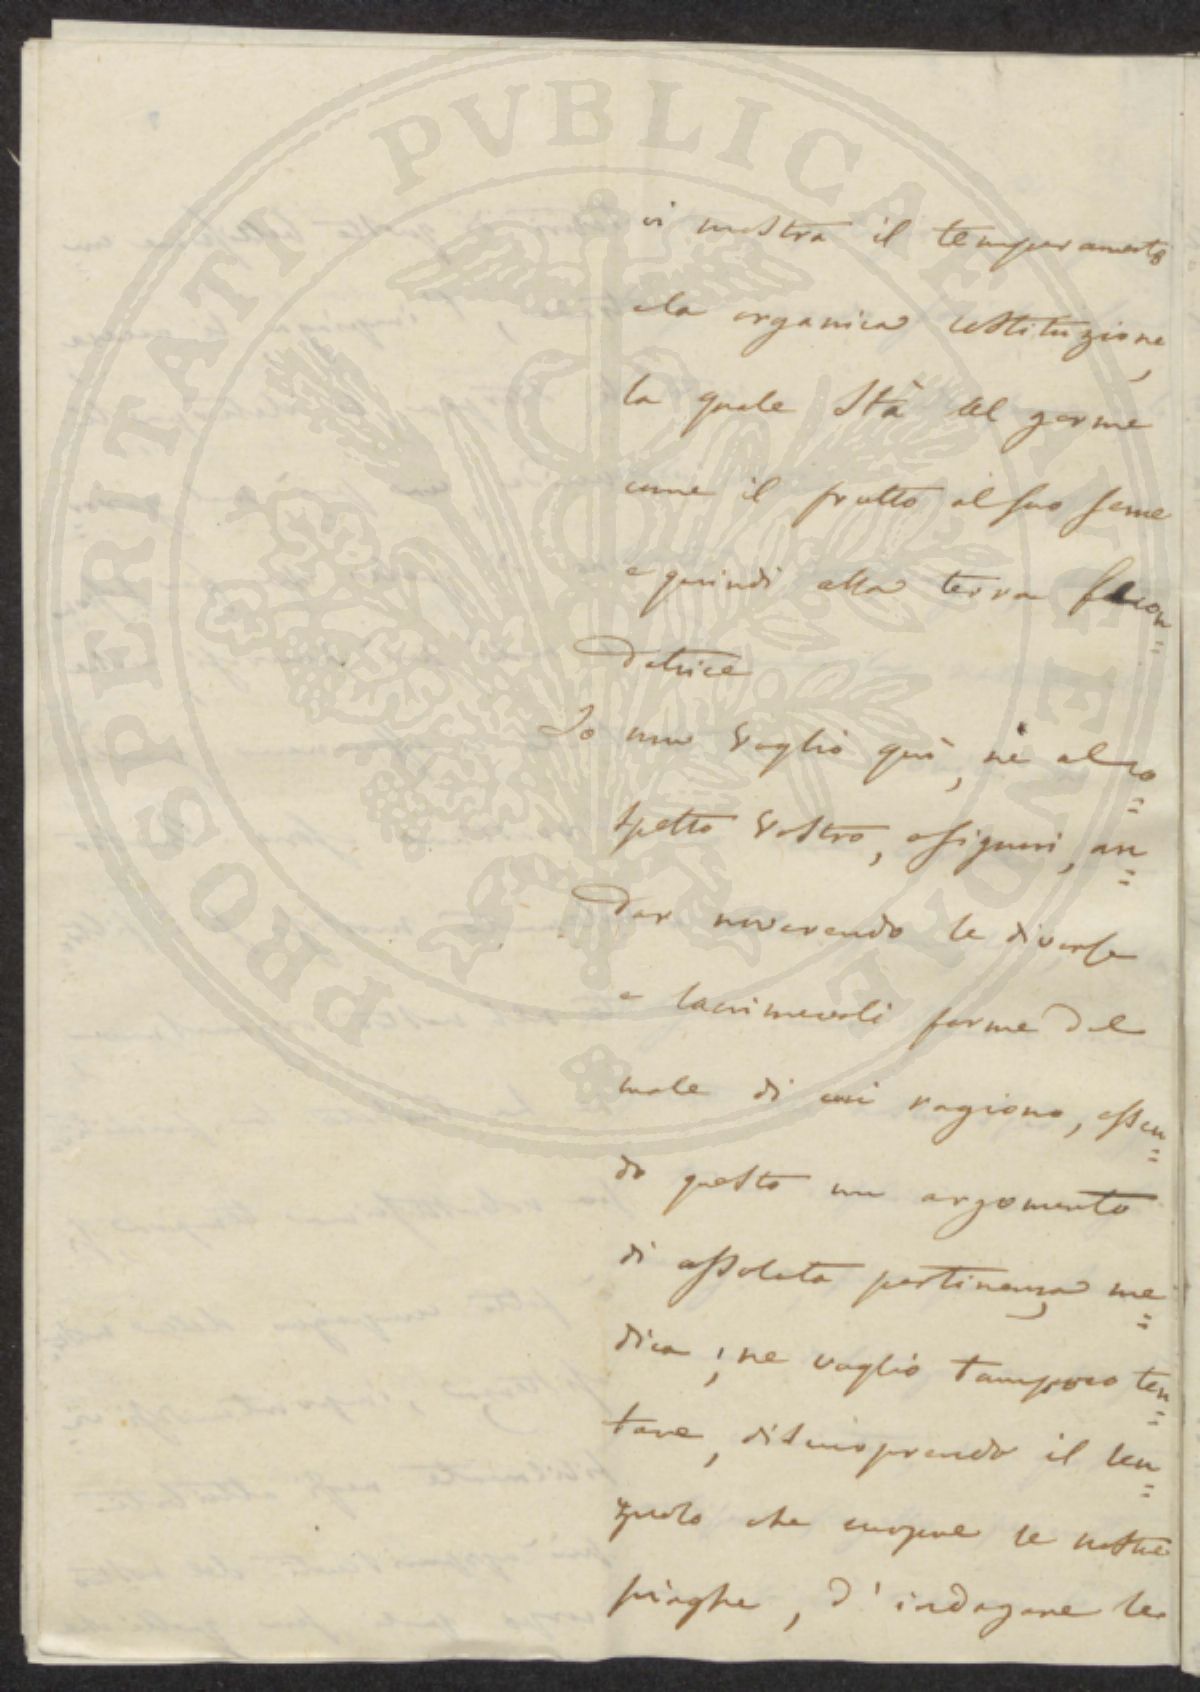 PROSPERITATI PVBLICAE AVGENDAE
vi mostra il temperamento
ela organica costituzione,
la quale stà al germe
come il frutto al suo seme
e quindi alla terra fecon=
datrice
Io non voglio quì, nè al co=
spetto vostro, o signori, an=
dar noverando le diverse
e lacrimevoli forme del
male di cui ragiono, essen=
do questo un argomento
di assoluta pertinenza me=
dica; ne voglio tampoco ten=
tare, discuoprendo il len=
zuolo che cuopre le nostre
piaghe, d'indagare le